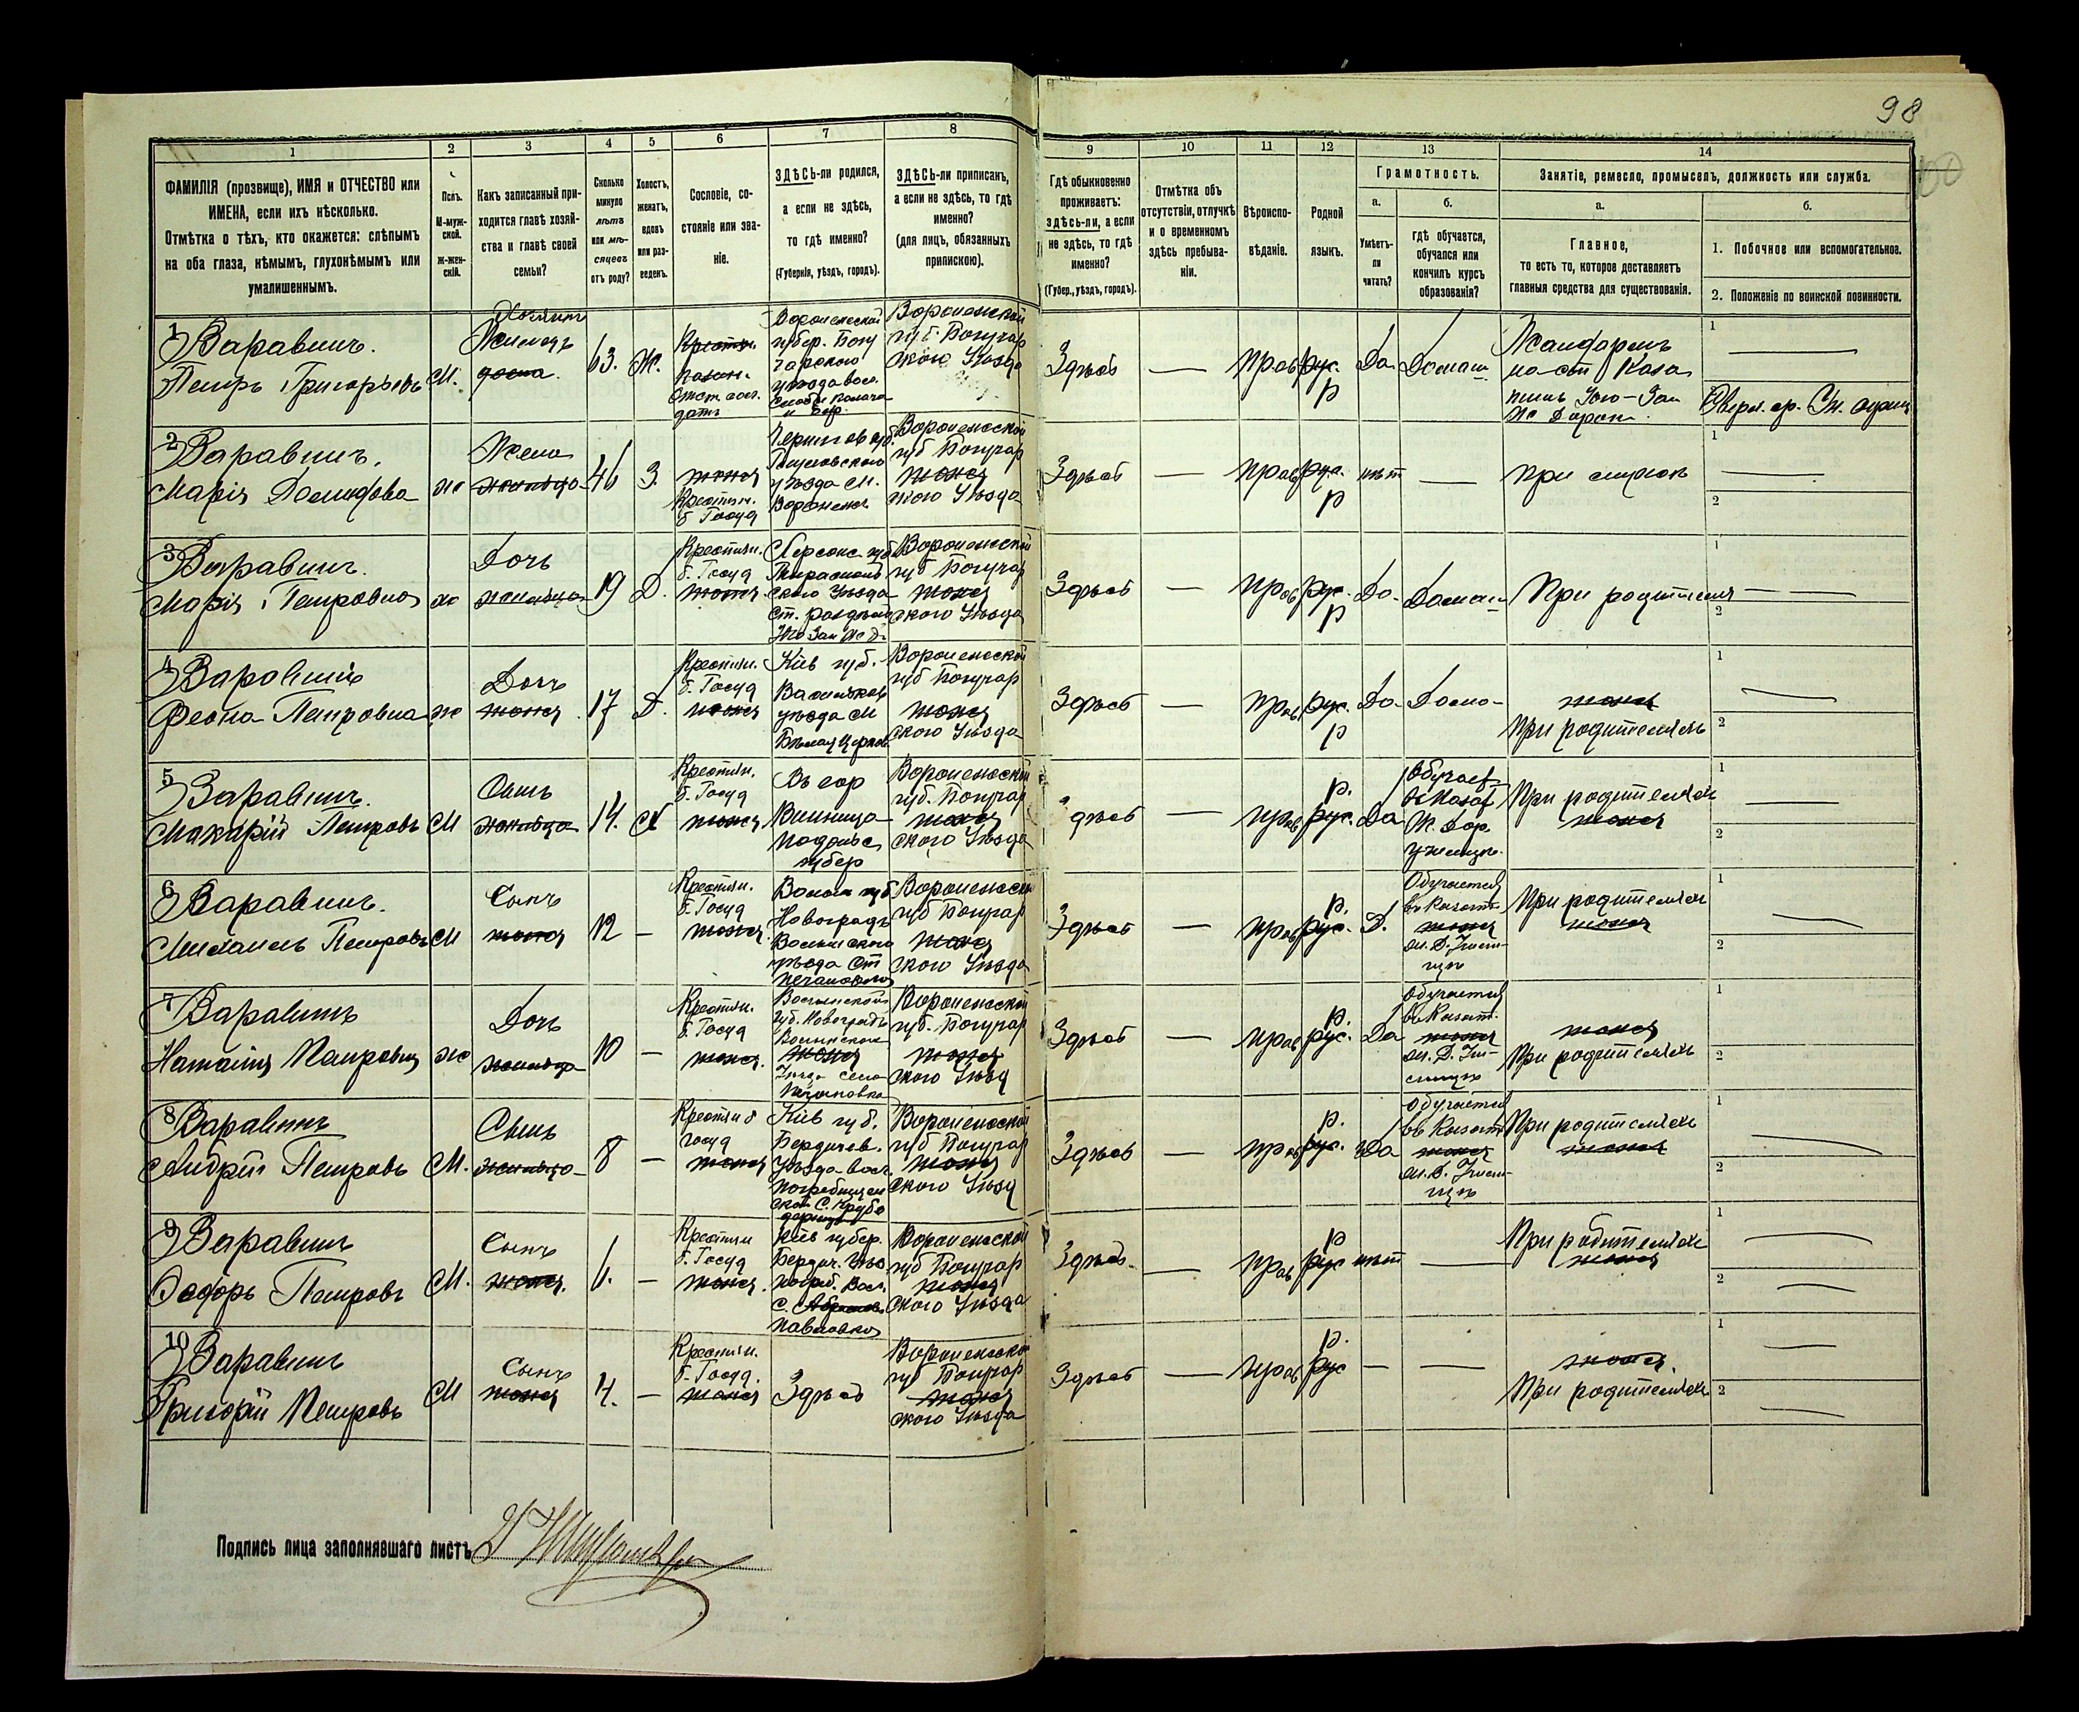 98
1 2 3 4 5 6 7 8 9 10 11 12 13 14
ФАМИЛІЯ (прозвище), ИМЯ и ОТЧЕСТВО или
ИМЕНА, если ихъ нѣсколько.
Отмѣтка о тѣхъ, кто окажется: слѣпымъ
на оба глаза, нѣмымъ, глухонѣмымъ или
умалишеннымъ.
Полъ.
М-муж-
ской.
ж-жен-
скій.
Какъ записанный при-
ходится главѣ хозяй-
ства и главѣ своей
семьи?
Сколько
минуло
лѣтъ
или мѣ-
сяцевъ
отъ роду?
Холостъ,
женатъ,
вдовъ
или раз-
веденъ.
Сословіе, со-
стояніе или зва-
ніе.
ЗДѢСЬ-ли родился,
а если не здѣсь,
то гдѣ именно?
(Губернія, уѣздъ, городъ).
ЗДѢСЬ-ли приписанъ,
а если не здѣсь, то гдѣ
именно?
(для лицъ, обязанныхъ
припискою).
Гдѣ обыкновенно
проживаетъ:
здѣсь-ли, а если
не здѣсь, то гдѣ
именно?
(Губер., уѣздъ, городъ).
Отмѣтка объ
отсутствіи, отлучкѣ
и о временномъ
здѣсь пребыва-
ніи.
Вѣроиспо-
вѣданіе.
Родной
языкъ.
Грамотность.
а.
Умѣетъ-
ли
читать?
б.
гдѣ обучается,
обучался или
кончилъ курсъ
образованія?
Занятіе, ремесло, промыселъ, должность или служба.
а.
Главное,
то есть то, которое доставляетъ
главныя средства для существованія.
б.
1. Побочное или вспомогательное.
2. Положеніе по воинской повинности.
1
Варавинъ.
Петръ Григорьевъ
М.
Хозяинъ
63.
Ж.
Воронежской
губер. Богу
чарскаго
уѣзда
Воронежской
губ. Богучар
скаго Уѣзда
Здѣсь
—
прав
рус.
р
Да
Домаш.
Жандармъ
на ст Каза
тинъ Юго-Зап
Ж Дороги
1
2
Варавинъ.
Марія
ж
Жена
46
З.
тоже
Крестьян.
б. Госуд
уѣзда М.
Воронежъ
Воронежской
губ Богучар
тоже
скаго Уѣзда
Здѣсь
—
прав
рус.
р
нѣт
—
При мужѣ
1
2
3
Варавинъ.
Марія Петровна
ж
Дочь
19
Д.
Крестьян.
б. Госуд
тоже
Херсонс. губ
Тирасполь
скаго Уѣзда
Ст. раздѣльн
Юго Зап Ж д.
Воронежской
губ Богучар
тоже
скаго Уѣзда
Здѣсь
—
прав
рус.
р
Да
Домаш
При родителяхъ
1
2
4
Варавинъ
Феона Петровна
ж
Дочь
тоже
17
Д.
Крестьян.
б. Госуд
тоже
Кіев губ.
Васильков
уѣзда М
Бѣлая Церковь
Воронежской
губ Богучар
тоже
скаго Уѣзда
Здѣсь
—
прав
рус.
р
Да
Дома
тоже
При родителяхъ
1
2
5
Варавинъ.
Макарій Петровъ
М
Сынъ
14.
Х
Крестьян.
б. Госуд
тоже
Въ гор
Винница
Подольс
губер
Воронежской
губ. Богучар
тоже
скаго Уѣзда
Здѣсь
прав
р.
рус.
Да
Обучает
въ Казат
Ж. Дор.
училищѣ.
При родителяхъ
тоже
1
2
6
Варавинъ.
Михаилъ Петровъ
М
Сынъ
тоже
12
—
Крестьян.
б. Госуд
тоже.
Волын губ
Новоградъ
Волынскаго
уѣзда Ст
Печановка
Воронежской
губ Богучар
тоже
скаго Уѣзда
Здѣсь
—
прав
р.
рус.
Д.
Обучается
въ Казат
тоже
Ж. Д. Учили-
щѣ
При родителяхъ
тоже
1
2
7
Варавинъ
Наталія Петровна
ж
Дочь
10
—
Крестьян.
б. Госуд
тоже.
Волынской
губ. Новоградъ
Волынскаго
тоже
Уѣзда село
Печановка
Воронежской
губ. Богучар
тоже
скаго Уѣзд
Здѣсь
—
прав
р.
рус.
Да
Обучается
въ Казат.
тоже
Ж. Д. Учи-
лищѣ
тоже
При родителяхъ
1
2
8
Варавинъ
Андрій Петровъ
М.
Сынъ
8
—
Крестьян б
Госуд
тоже
Кіев губ.
Бердичев.
Уѣзда вол.
Погребищен
ской
Воронежской
губ Богучар
тоже
скаго Уѣзд
Здѣсь
—
прав
р.
рус.
Да
Обучается
въ Казат
тоже
Ж. Д. Учили-
щѣ
При родителяхъ
тоже
1
2
9
Варавинъ
Ѳедоръ Петровъ
М.
Сынъ
тоже.
6.
—
Крестьян
б. Госуд
тоже.
Кіев губер.
Бердич. Уѣз
погреб. Вол.
с.
Павловка
Воронежской
губ Богучар
тоже
скаго Уѣзда
Здѣсь.
—
прав
р
рус
нѣт
—
При родителяхъ
тоже
1
2
10
Варавинъ
Григорій Петровъ
М
Сынъ
тоже
4.
—
Крестьян.
б. Госуд.
тоже
Здѣсь
Воронежской
губ Богучар
тоже
скаго Уѣзда
Здѣсь
—
прав
р.
рус
—
—
тоже.
При родителяхъ
1
2
Подпись лица заполнявшаго листъ